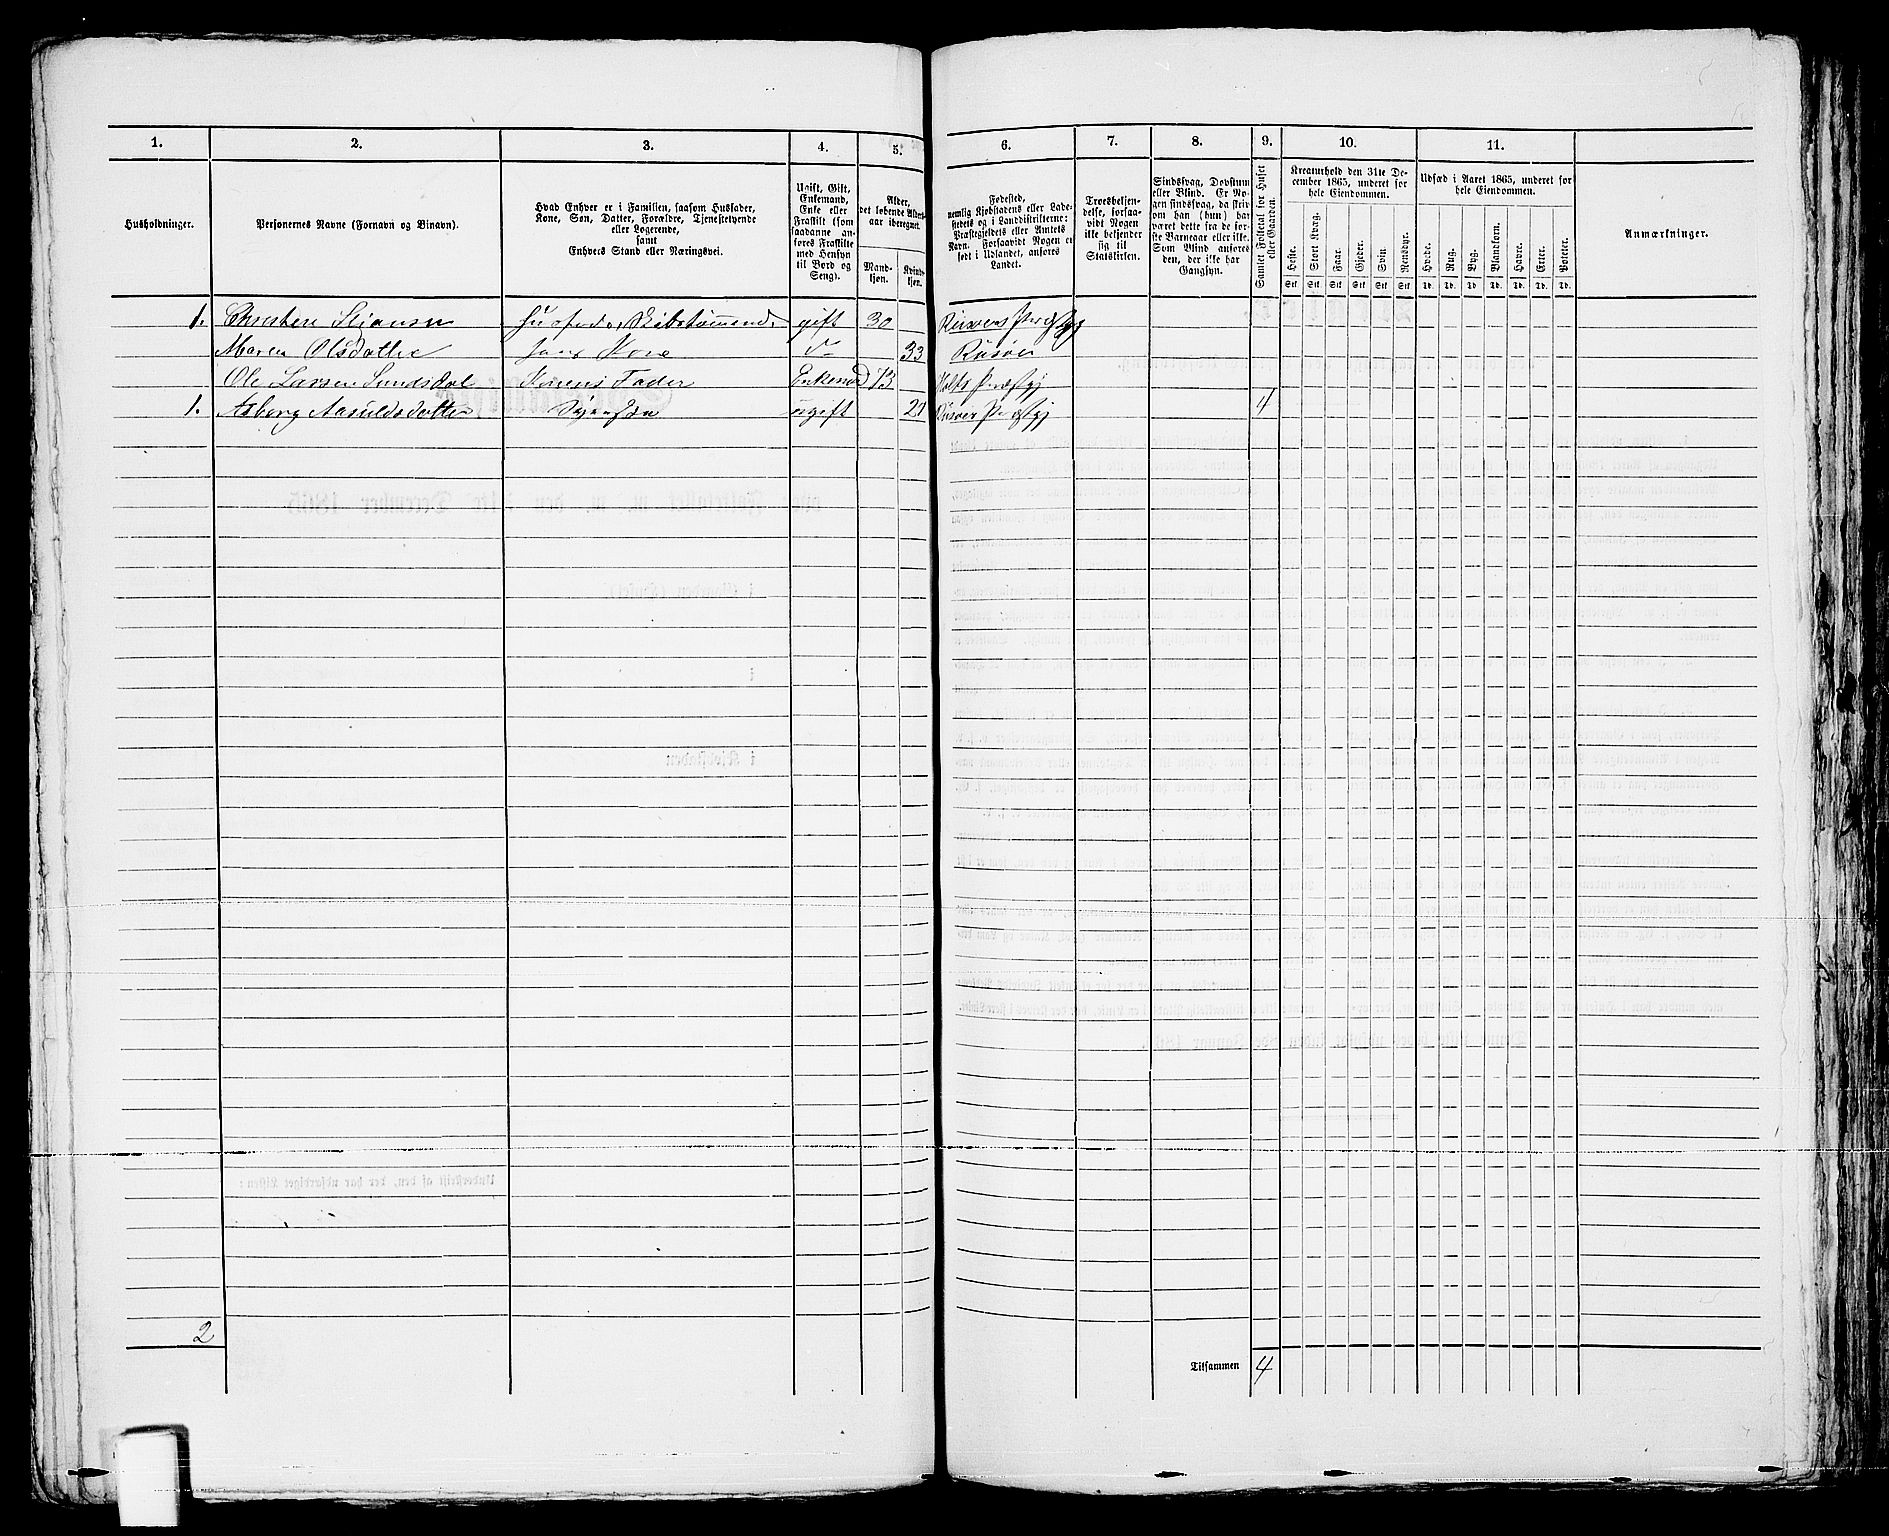 1. 2. 3. 4. 5. 6. 7. 8. 9. 10. 11.
Husholdninger.
Personernes Navne (Fornavn og Binavn).
Hvad Enhver er i Familien, saasom Husfader,
Kone, Søn, Datter, Forældre, Tjenestetyende
eller Logerende,
samt
Enhvers Stand eller Næringsvei.
Ugift, Gift,
Enkemand,
Enke eller
Fraskilt (som
saadanne an-
føres Fraskilte
med Hensyn
til Bord og
Seng).
Alder,
det løbende Alders-
aar iberegnet.
Mand-
kjøn.
Kvinde-
kjøn.
Fødested,
nemlig Kjøbstadens eller Lade-
stedets og i Landdistrikterne:
Præstegjeldets eller Amtets
Navn. Forsaavidt Nogen er
født i Udlandet, anføres
Landet.
Troesbekjen-
delse, forsaa-
vidt Nogen
ikke bekjender
sig til
Statskirken.
Sindssvag, Døvstum
eller Blind. Er No-
gen sindssvag, da skriv
om han (hun) har
været dette fra de før-
ste Barneaar eller ikke.
Som Blind anføres
den, der ikke har
Gangsyn.
Samlet Folketal for Huset
eller Gaarden.
Kreaturhold den 31te De-
cember 1865, underet for
hele Eiendommen.
Heste. Stort Kvæg. Faar. Gjeder. Svin. Rensdyr.
Stk Stk Stk Stk Stk Stk
Udsæd i Aaret 1865, underet for
hele Eiendommen.
Hvede. Rug. Byg. Blandkorn. Havre. Erter. Poteter.
Td. Td. Td. Td. Td. Td. Td.
Anmærkninger.
1. gift 30
Maren Olsdatter hans Kone 33 Risøer
Ole Larsen Sundsdal Konens Fader Enkemd 73 Holts Præstgj
1. Asborg Aasuldsdatter ugift Risøer Præstgj 4
2
Tilsammen 4